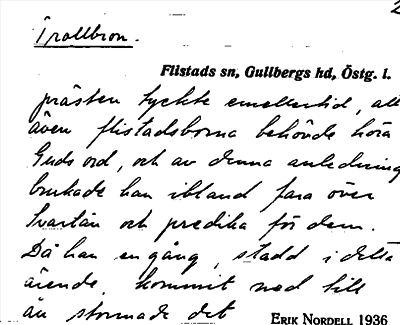 2
Trollbron.
Flistads sn, Gullbergs hd, Östg. l.
prästen tyckte emellertid, att
även flistadsborna behövde höra
Guds ord, och av denna anledning
brukade han ibland fara över
Svartån och predika för dem.
Då han en gång, stadd i detta
ärende, kommit ned till
ån stormade det
ERIK NORDELL 1936